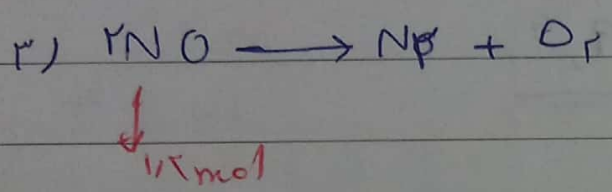 ۳) ۲NO → N۲ + O۲
۱/۲ mol